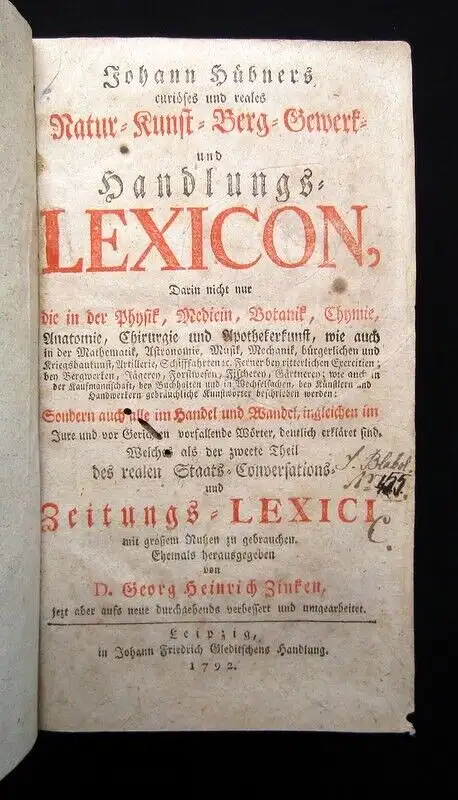 Johann Hübners
curiöses und reales
Natur-Kunst-Berg-Gewerk-
und
Handlungs-
LEXICON,
Darin nicht nur
die in der Physik, Medicin, Botanik, Chymie,
Anatomie, Chirurgie und Apothekerkunst, wie auch
in der Mathematik, Astronomie, Musik, Mechanik, bürgerlichen und
Kriegsbaukunst, Artillerie, Schifffahrten ec. Ferner bey ritterlichen Exercitien;
bey Bergwerken, Jägerey, Forstwesen, Fischerey, Gärtnerey; wie auch in
der Kaufmannschaft, bey Buchhalten und in Wechselsachen, bey Künstlern und
Handwerkern gebräuchliche Kunstwörter beschrieben werden:
Sondern auch alle im Handel und Wandel, ingleichen im
Jure und vor Gerichten vorfallende Wörter, deutlich erkläret sind.
Welches als der zweete Theil
des realen Staats-Conversations-
und
Zeitungs-LEXICI
mit großem Nutzen zu gebrauchen.
Ehemals herausgegeben
von
D. Georg Heinrich Zinken,
jetzt aber aufs neue durchgehends verbessert und umgearbeitet.
Leipzig,
in Johann Friedrich Gleditschens Handlung.
1792.
455.
C.